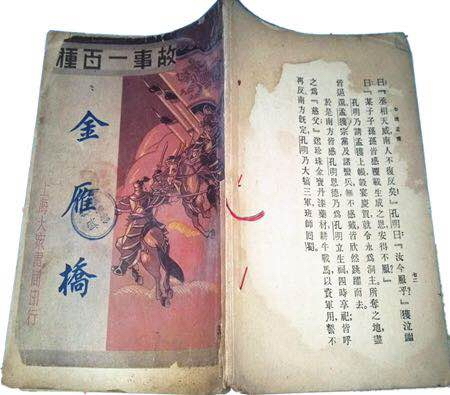 故事一百種
金雁橋
海大衆書局印行
曰『丞相天威南人不復反矣』孔明曰『汝今服乎？』獲泣謝
曰『某子子孫孫皆感覆載生成之恩安得不服』
孔明乃請孟獲上帳設宴慶賀就令永爲洞主所奪之地盡
皆退還孟獲宗黨及諸蠻兵無不感戴皆欣然跳躍而去。
於是南方皆感孔明恩德乃爲孔明立生祠四時享祀皆呼
之爲『慈父』送珍珠金寶丹漆藥材耕牛戰馬以資軍用誓不
再反南方旣定孔明乃大犒三軍班師囘蜀。